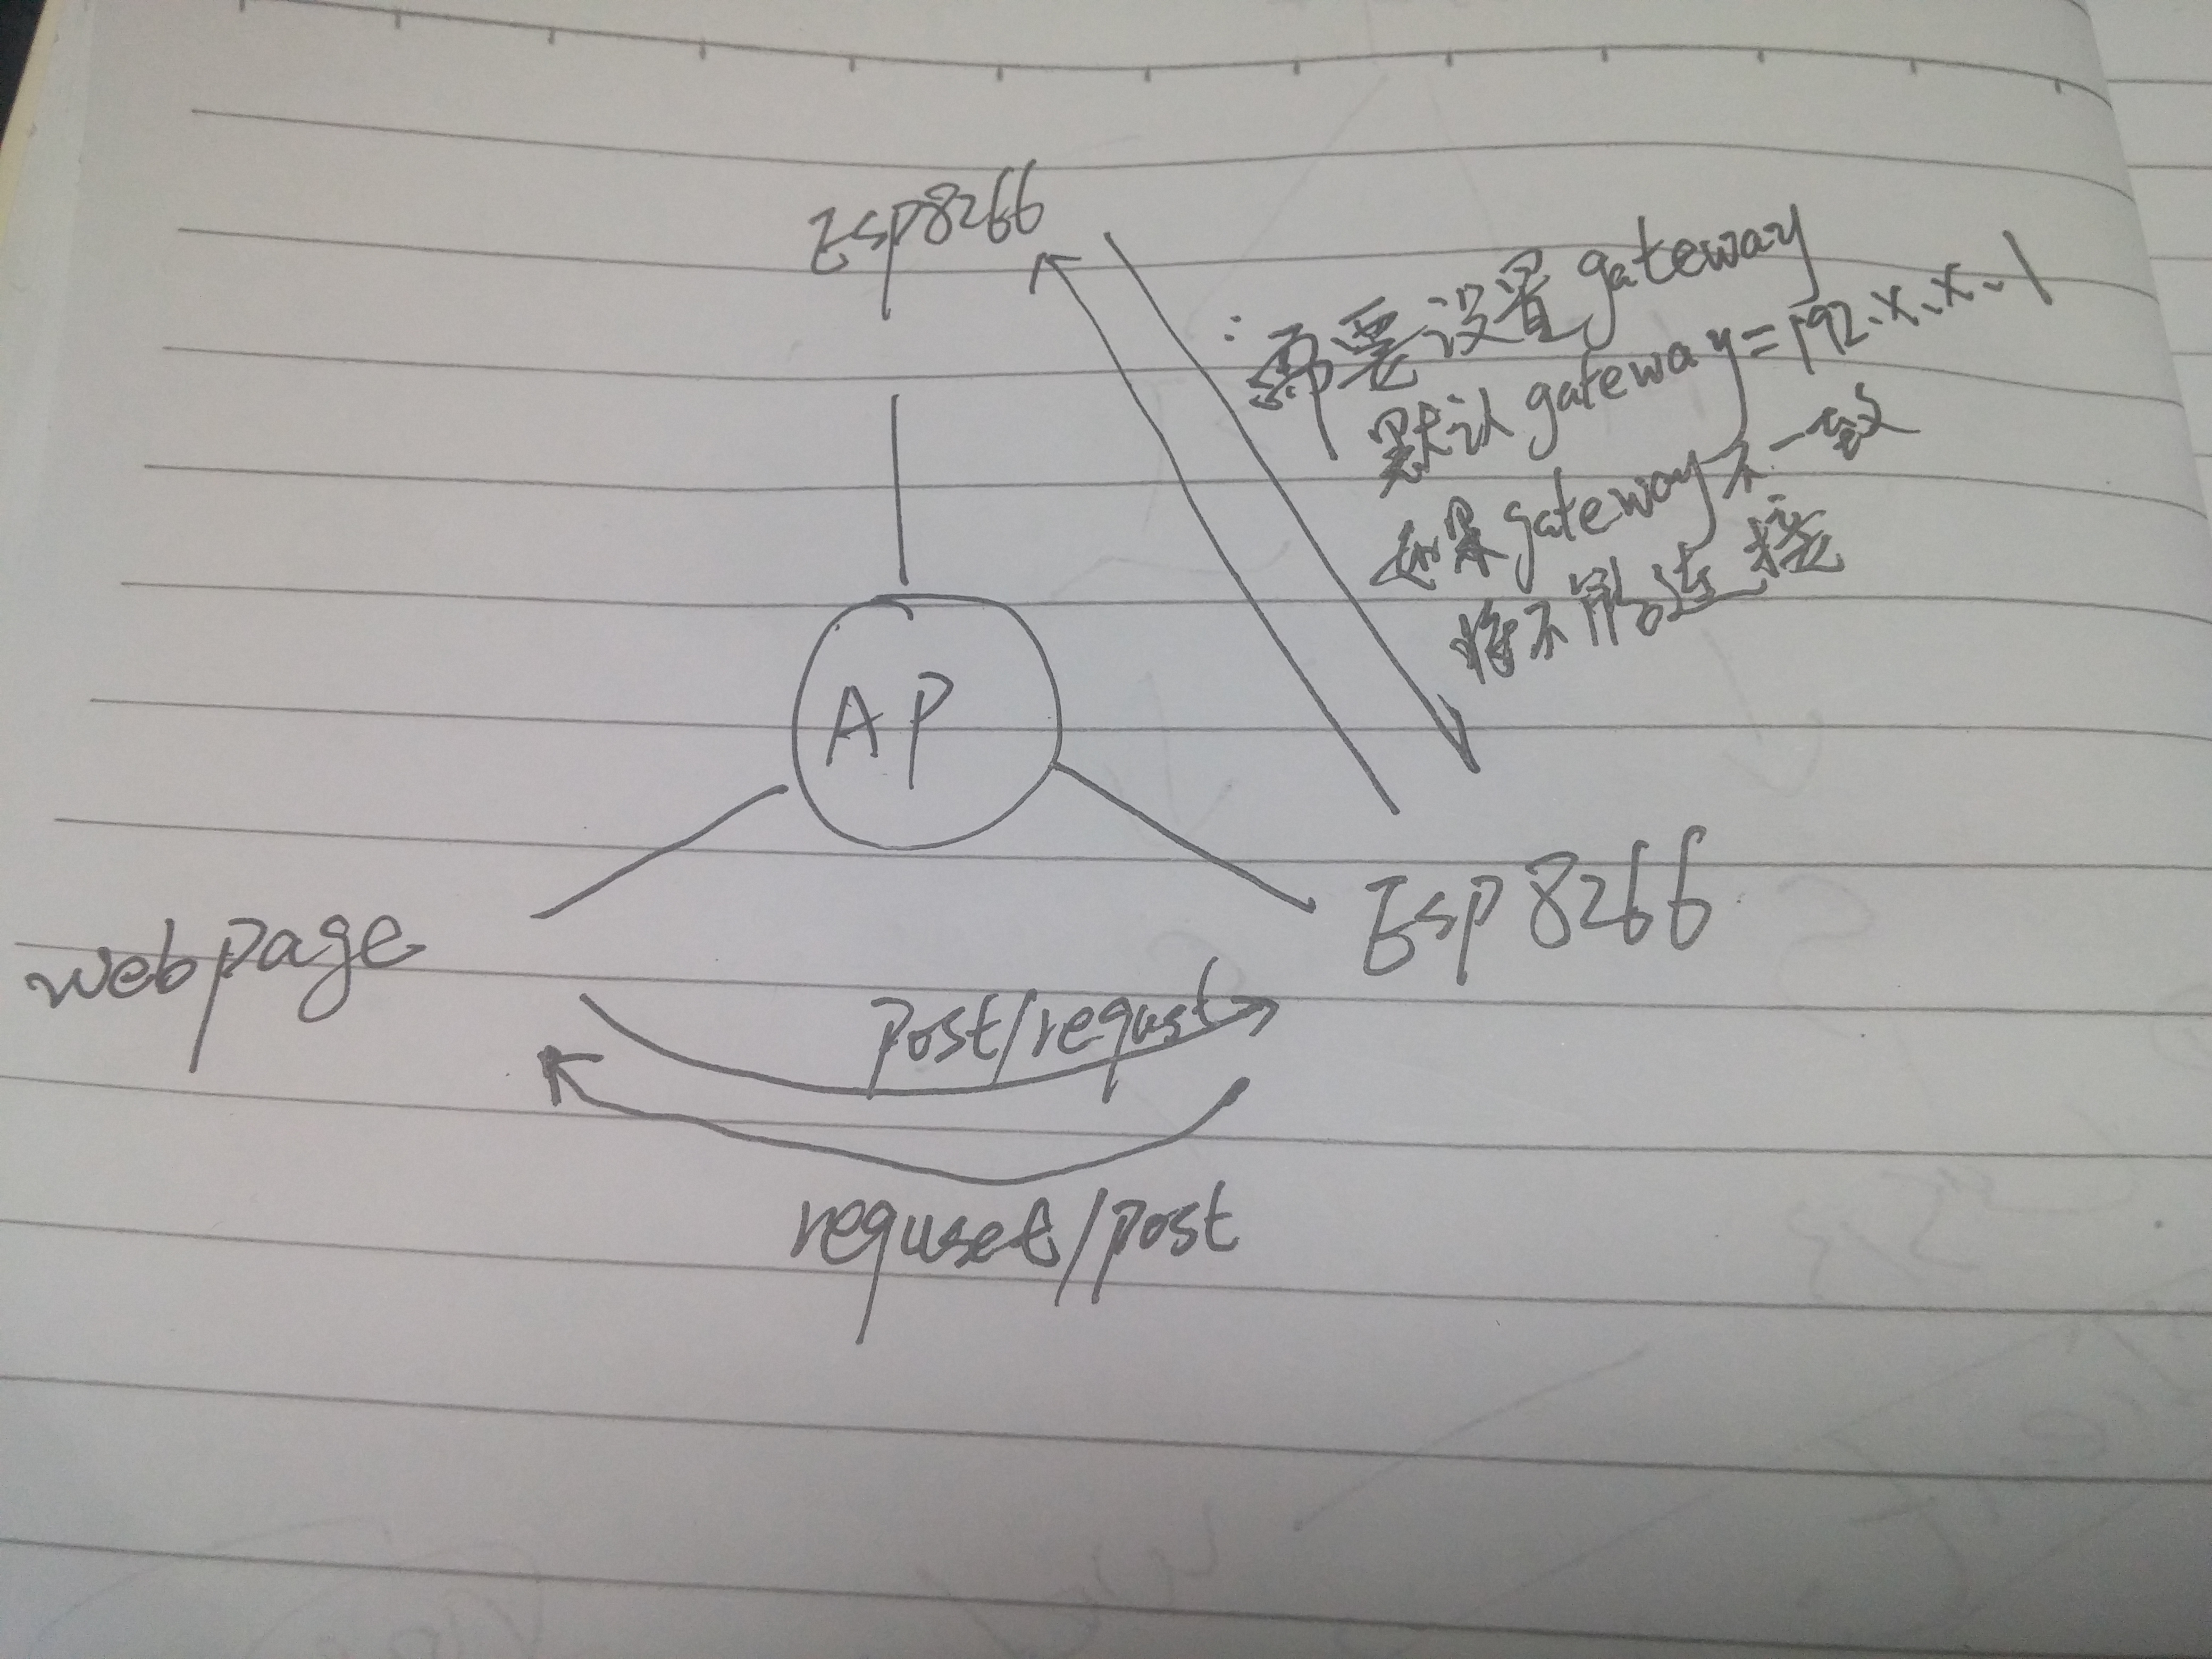 Esp8266
需要设置gateway
默认gateway=192.x.x.1
如果gateway不一致
将不能连接
AP
webpage
Esp8266
post/requst
requset/post